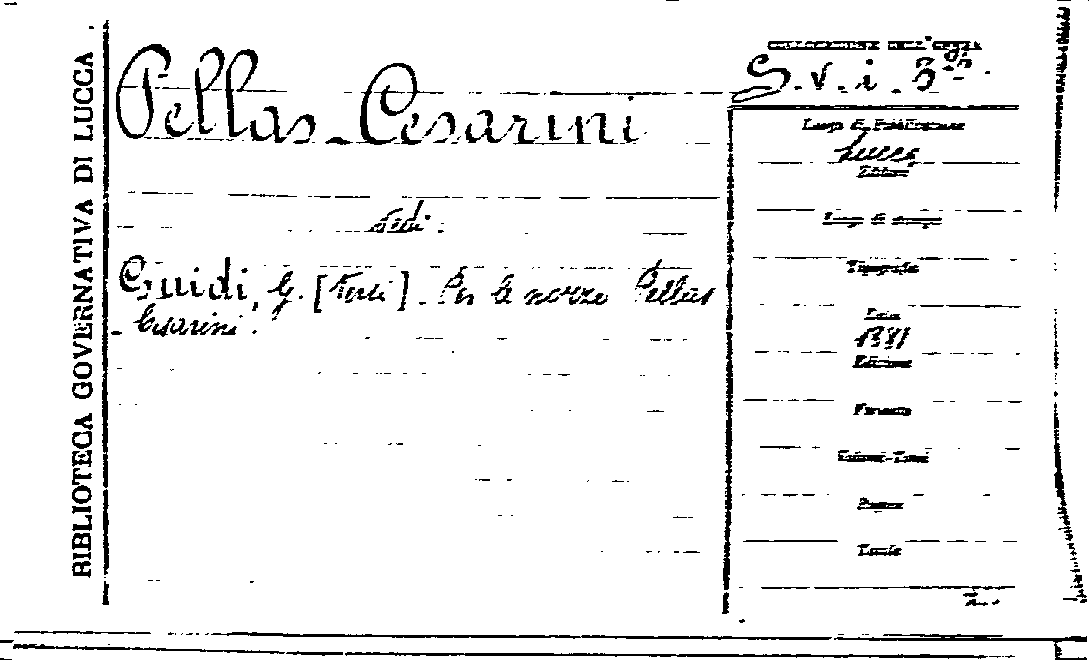 BIBLIOTECA GOVERNATIVA DI LUCCA
Pellas-Cesarini
Vedi:
Guidi, G. [Forti]. Per le nozze Pellas
- Cesarini.
S.v.i. 3
Luogo di Pubblicazione
Lucca
Editore
Luogo di stampa
Tipografia
Data
1881
Edizione
Formato
Volumi-Tomi
Pagine
Tavole